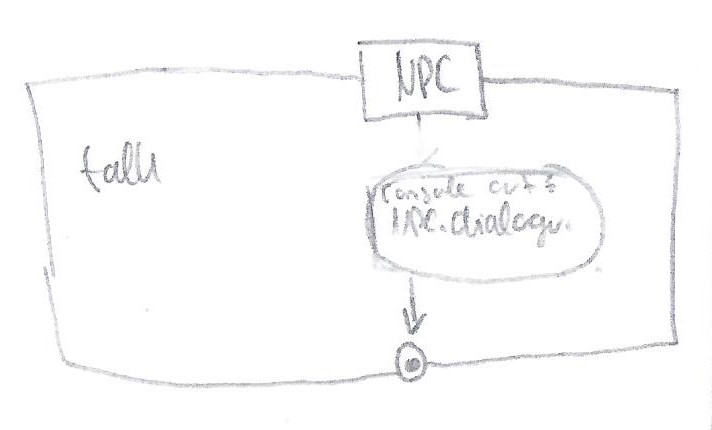 NPC
talk
Console out :
NPC.dialogu.